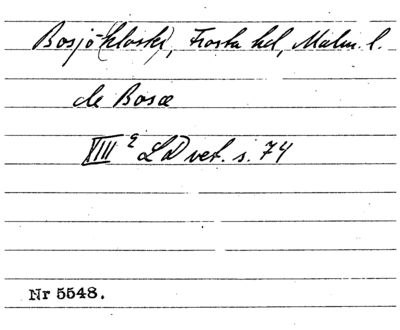 Bosjö(kloster), Frosta hd, Malm. l.
de Bosæ
XIII e LD vet. s. 74
Nr 5548.